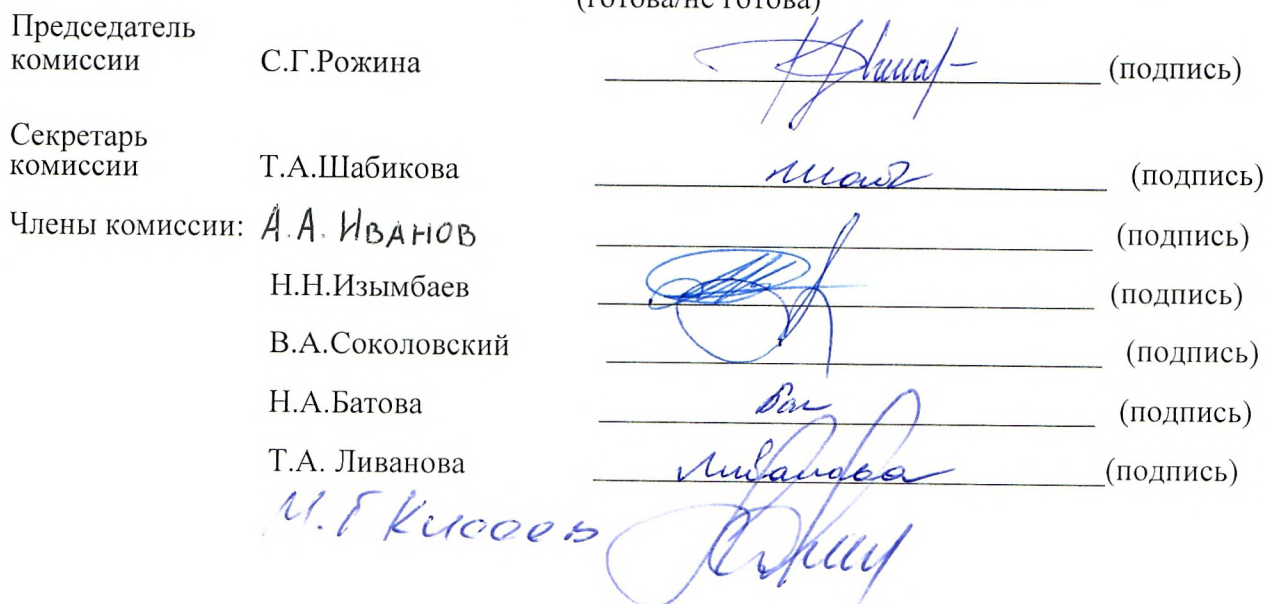 (готова/не готова)
Председатель
комиссии С.Г.Рожина (подпись)
Секретарь
комиссии Т.А.Шабикова (подпись)
Члены комиссии: А.А. Иванов (подпись)
Н.Н.Изымбаев (подпись)
В.А.Соколовский (подпись)
Н.А.Батова (подпись)
Т.А. Ливанова Ливанова (подпись)
М.Г